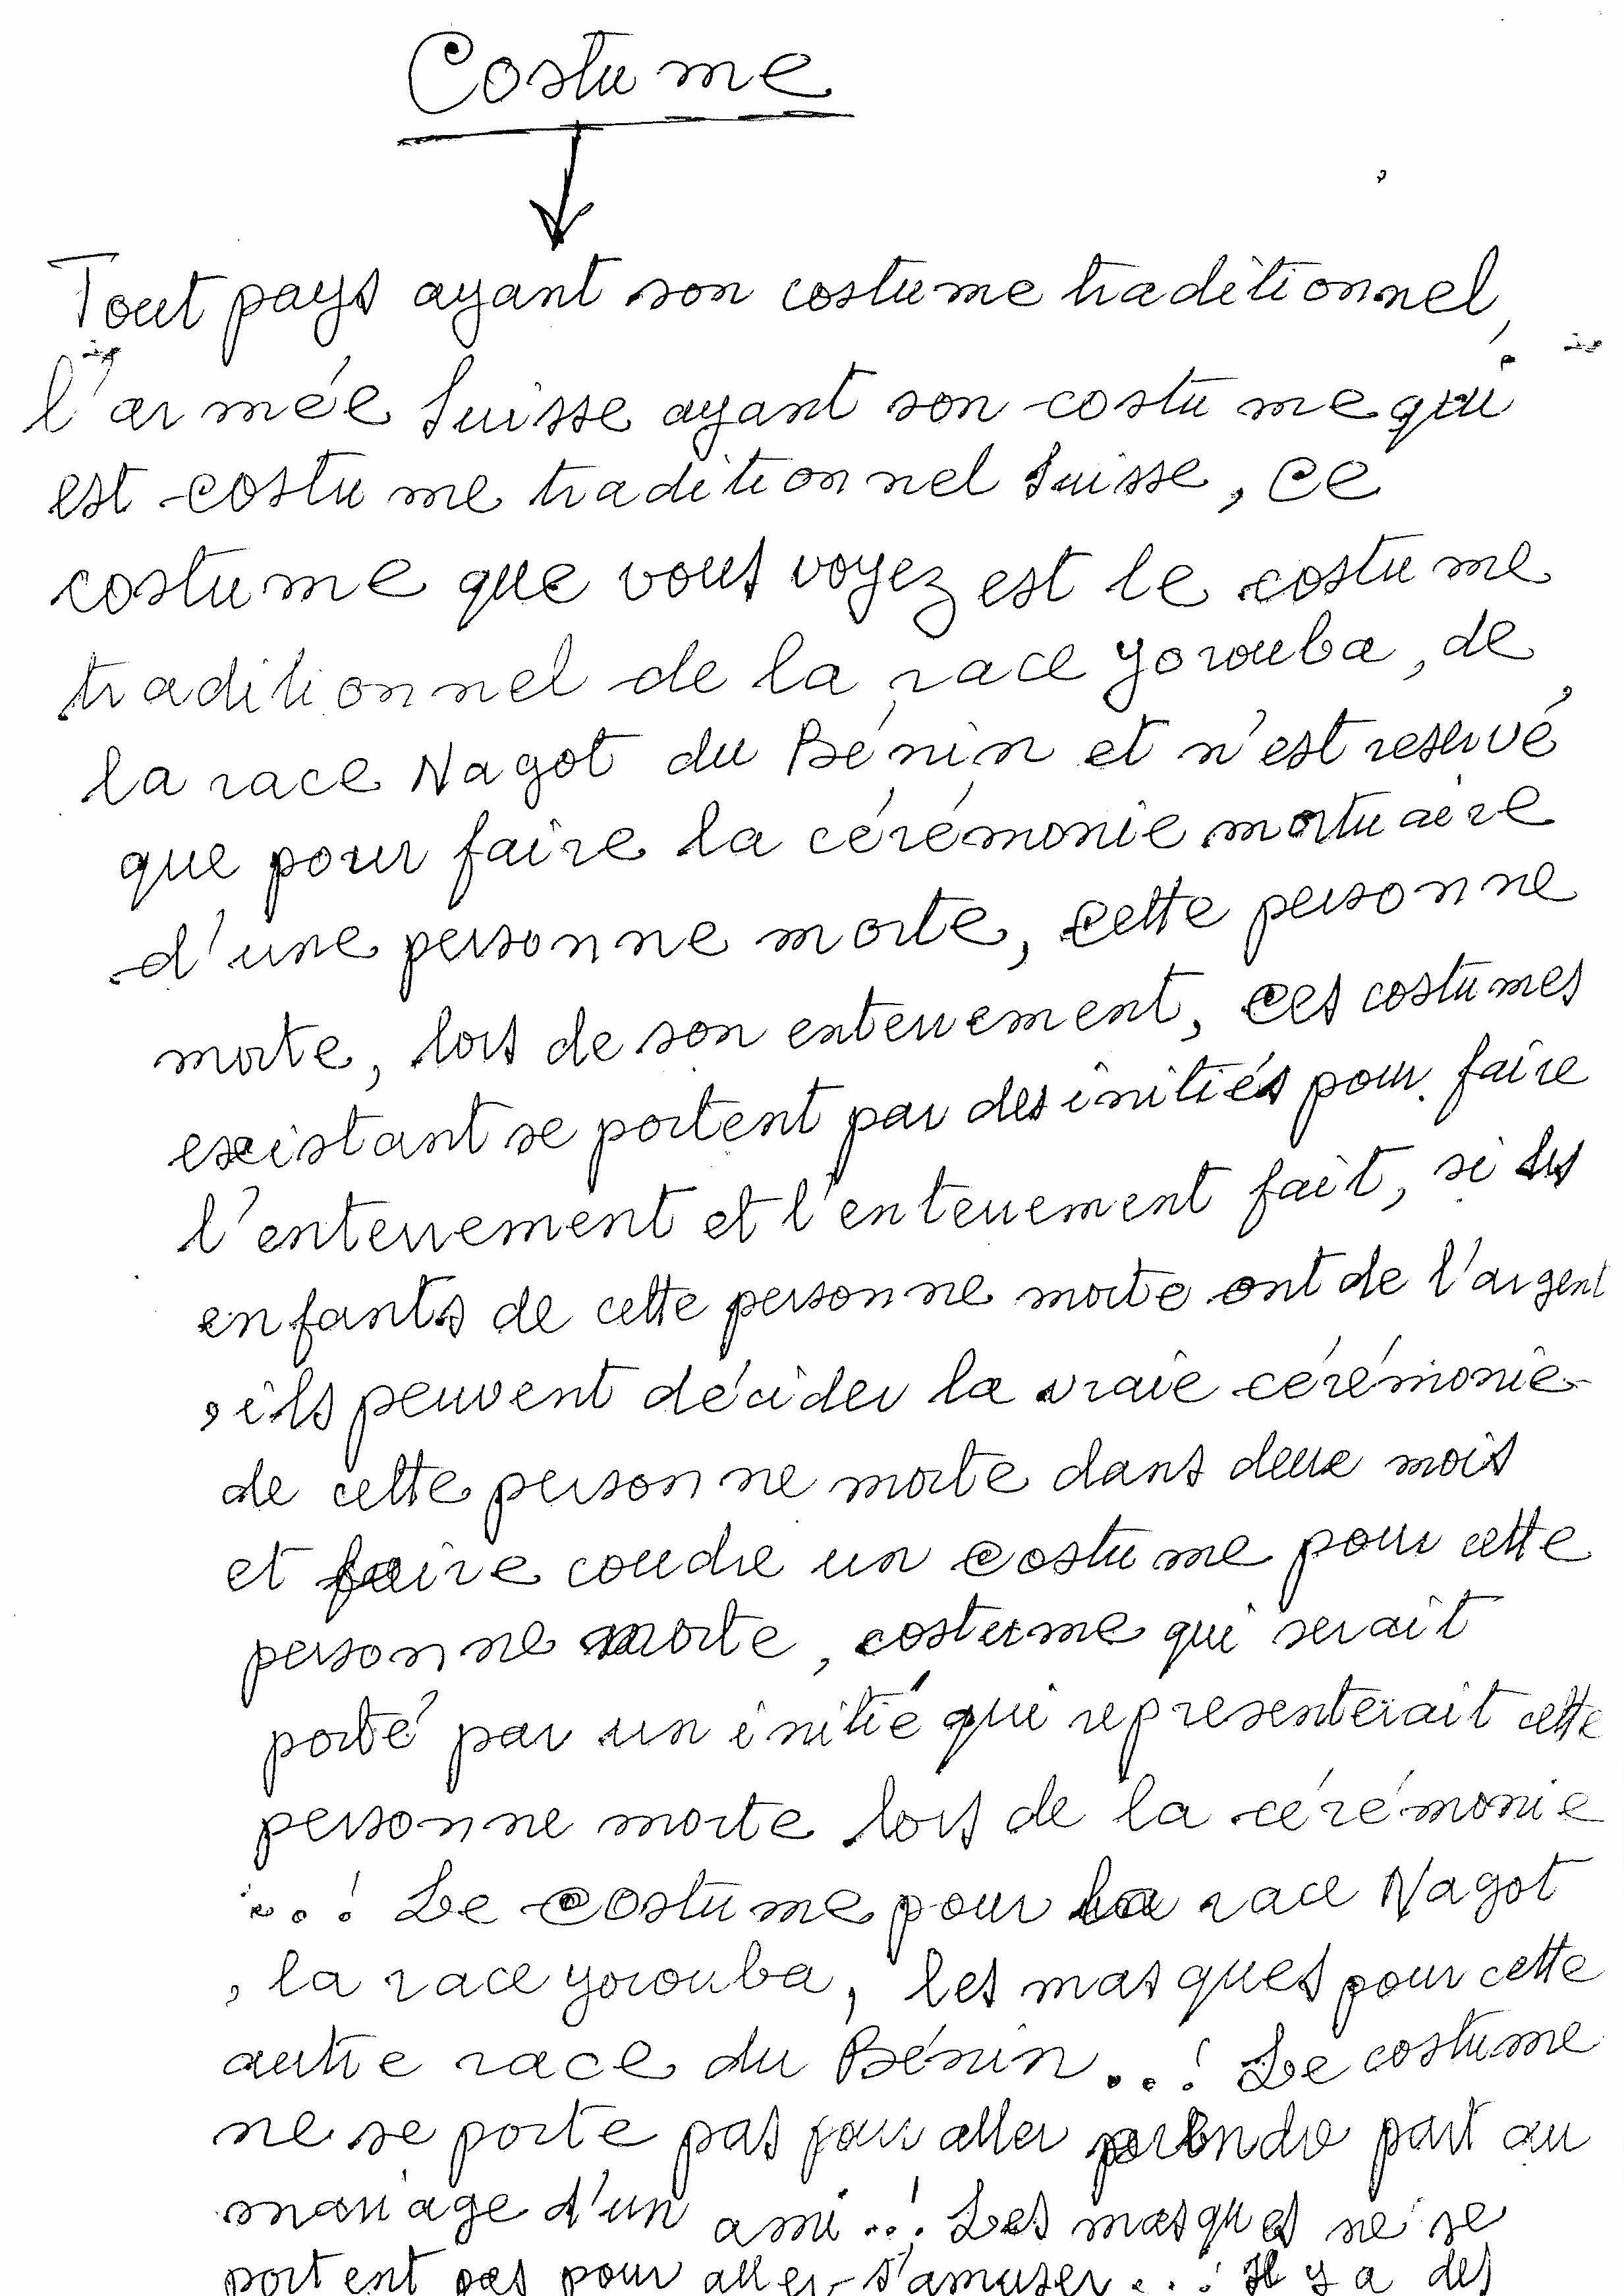 Costume
Tout pays ayant son costume traditionnel,
l'armée Suisse ayant son costume qui
est costume traditionnel Suisse, ce
costume que vous voyez est le costume
traditionnel de la race yorouba, de
la race Nagot du Bénin et n'est reservé
que pour faire la cérémonie mortuaire
d'une personne morte, cette personne
morte, lors de son enterrement, ces costumes
existant se portent par des initiés pour faire
l'enterrement et l'enterrement fait, si les
enfants de cette personne morte ont de l'argent
, ils peuvent décider la vraie cérémonie
de cette personne morte dans deux mois
et faire coudre un costume pour cette
personne morte, costume qui serait
porté par un initié qui representerait cette
personne morte lors de la cérémonie
...! Le costume pour la race Nagot
, la race yorouba, les masques pour cette
autre race du Bénin...! Le costume
ne se porte pas pour aller prendre part au
mariage d'un ami...! Les masques ne se
portent pas pour aller s'amuser...! Il y a des